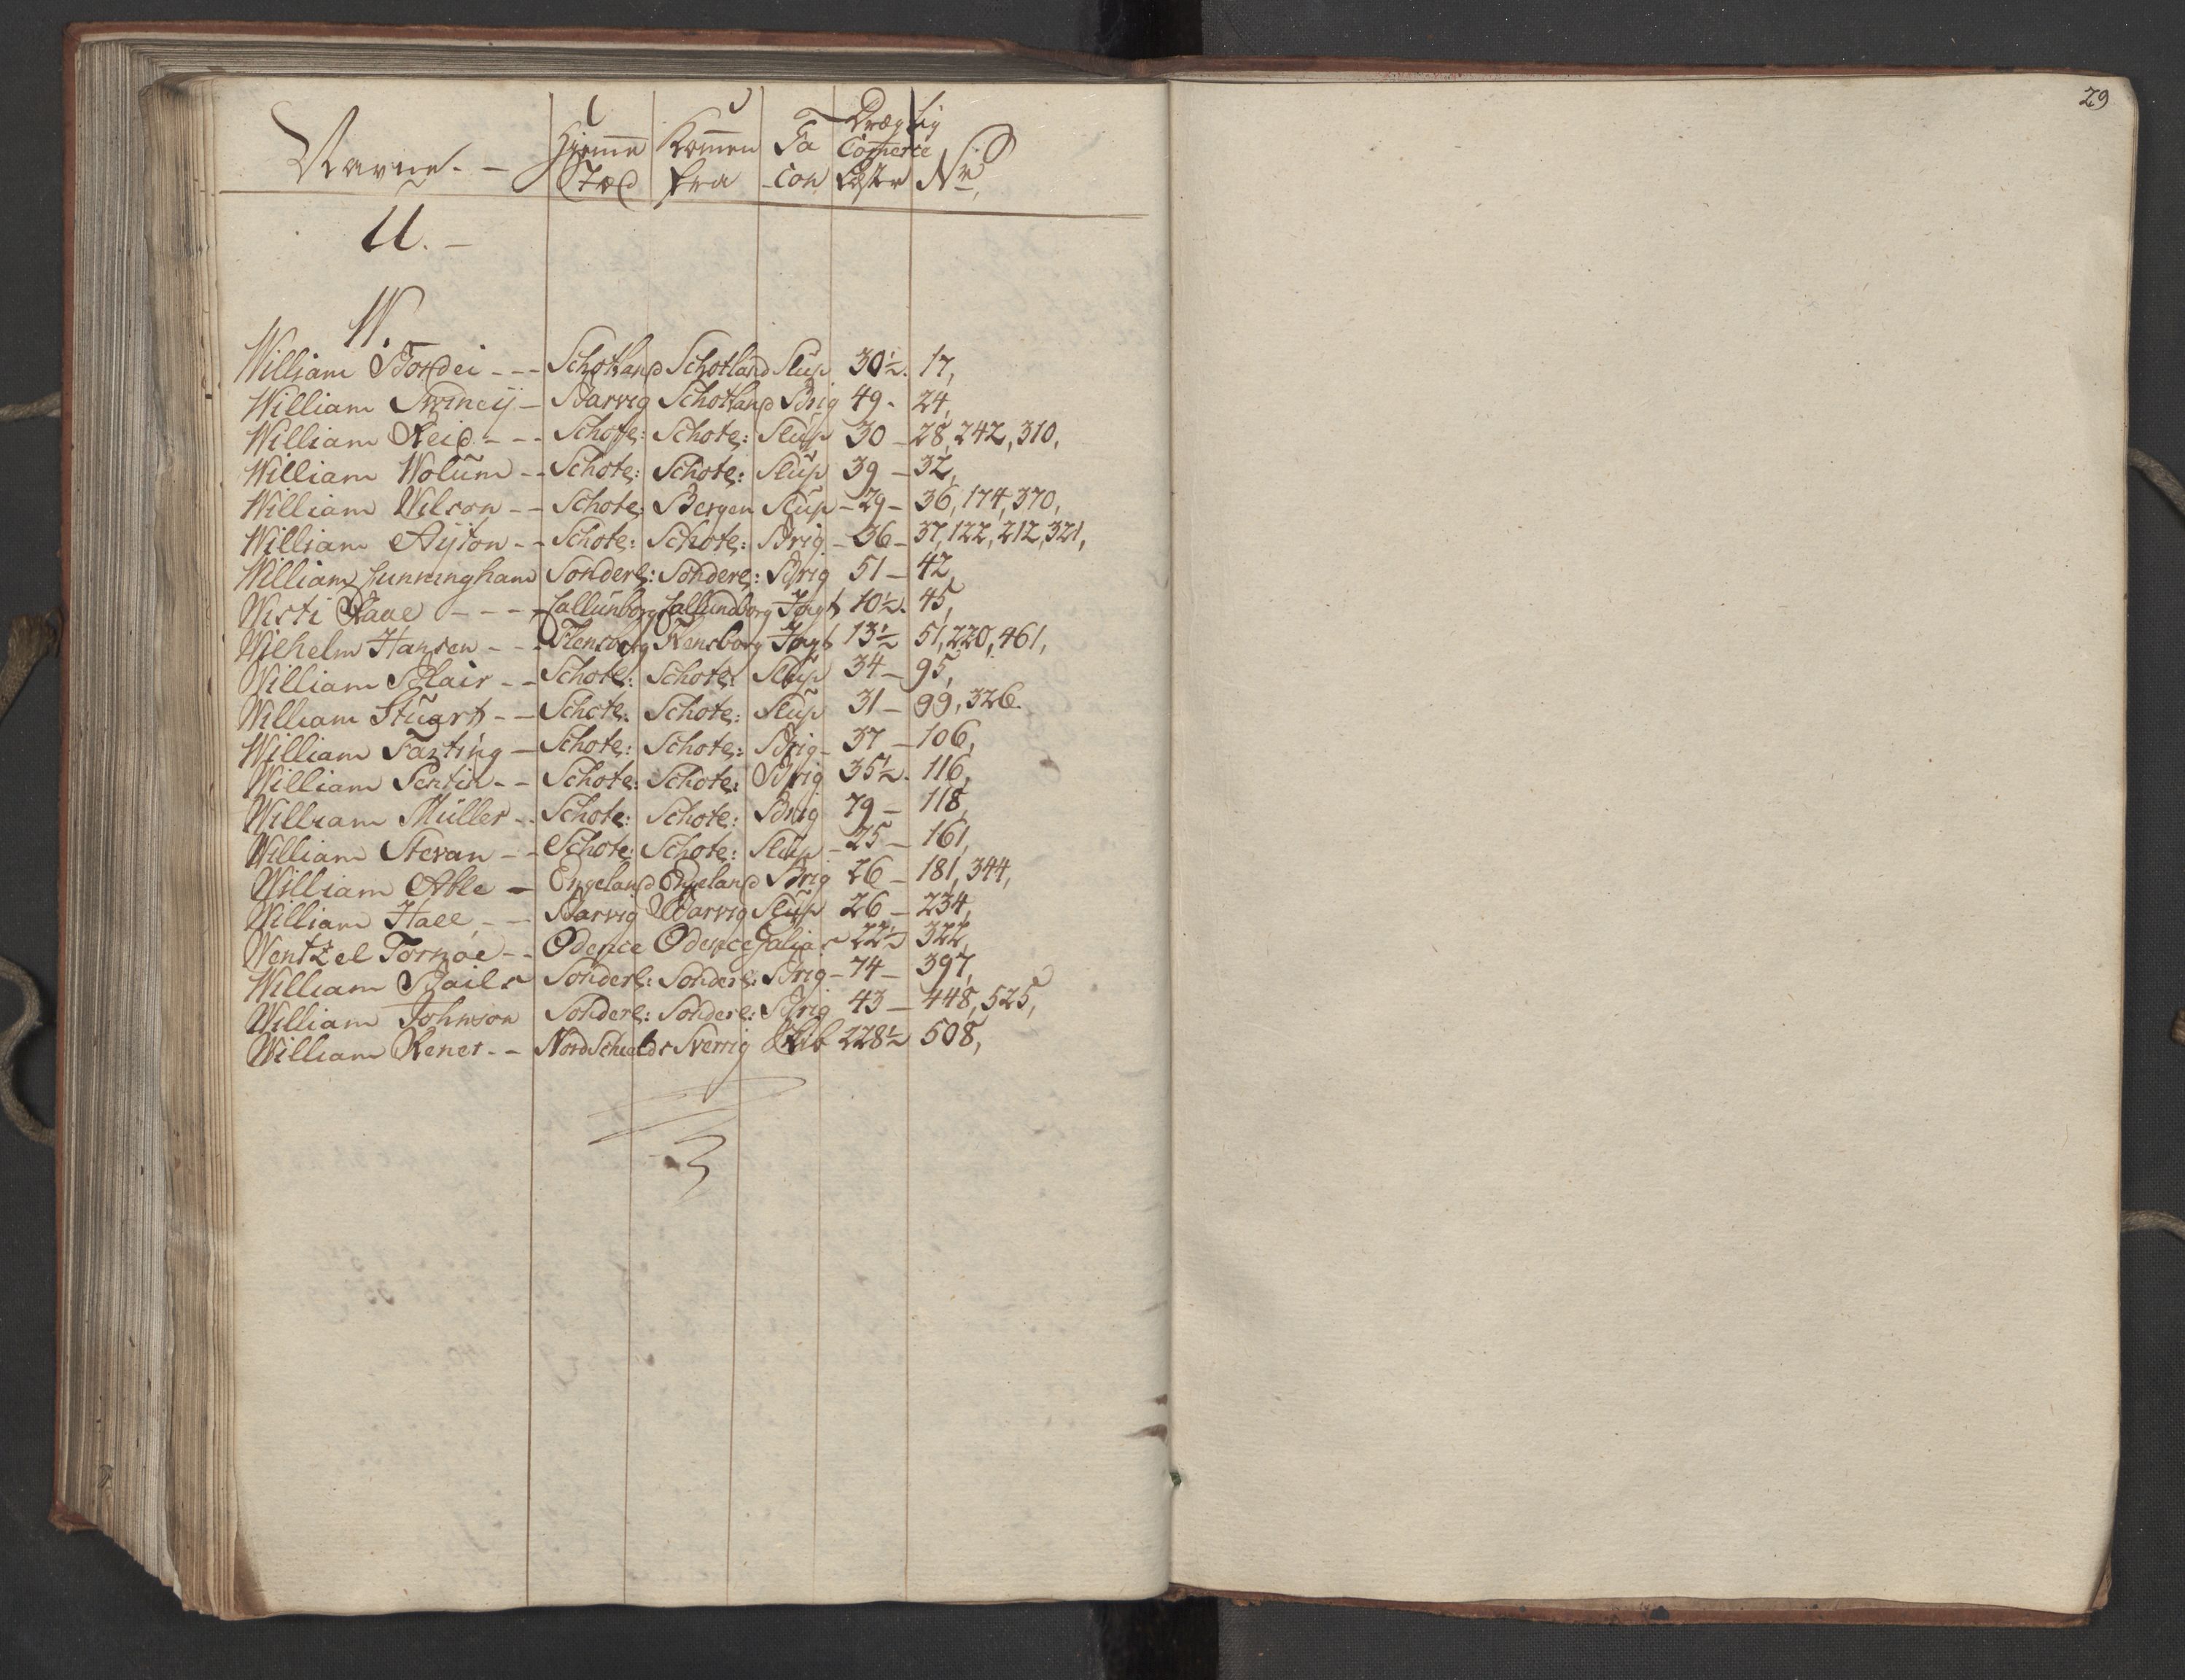 29
Navne. - Hiemme Stæd Komen fra Facon Drægtig Comerce Læster No,
U. -
W.
William Bondei - - - Schotland Schotland Slup 30½. 17,
William Swineÿ - Barvig Schotland Brig 49. 24,
William Reid - - - Schotl: Schotl: Slup 30 - 28, 242, 310,
William Wolum - - Schotl: Schotl: Slup 39 - 32,
William Wilson - - Schotl: Bergen Slup - 29 - 36, 174, 370,
William Aÿton - - Schotl: Schotl: Brig - 36 - 37, 122, 212, 321,
William Cunningham Sonderl: Sonderl: Brig 51 - 42,
Wisti Aaae - - - - Callunborg Callundborg Jagt 10½. 45,
Wilhelm Hansen - - - Flensborg Flensborg Jagt 13½ 51, 220, 461,
William Blair - - Schotl: Schotl: Slup 34 - 95,
William Stuart - - Schotl: Schotl: Slup 31 - 99, 326.
William Farting - Schotl: Schotl: Brig - 37 - 106,
William Sentin - - Schotl: Schotl: Brig 35½. 116,
William Müller - - Schotl: Schotl: Brig 79 - 118,
William Stevan - - Schotl: Schotl: Slup - 25 - 161,
William Able - Engeland Engeland Brig 26 - 181, 344,
William Hall - - Barvig Barvig Slup 26 - 234,
Wentzel Tornöe - - Odence Odence Galias 22½ 322,
William Bails Sonderl: Sonderl: Brig - 74 - 397,
William Johnson Sonderl: Sonderl: Brig 43 - 448, 525,
William Rener - - Nord Scheelds Sverrig Skib 228½ 508,